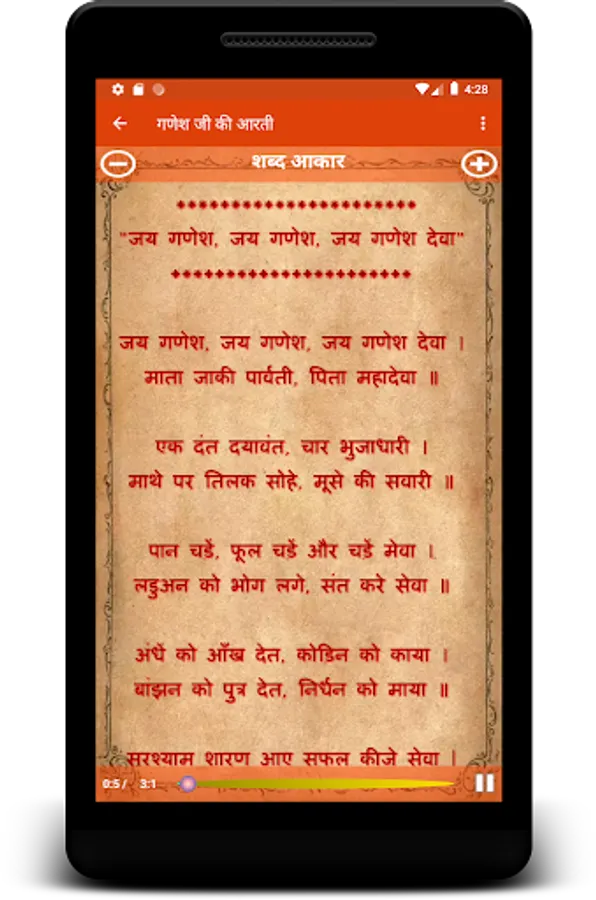 4:28
गणेश जी की आरती
शब्द आकार
"जय गणेश, जय गणेश, जय गणेश देवा"
जय गणेश, जय गणेश, जय गणेश देवा ।
माता जाकी पार्वती, पिता महादेवा ॥
एक दंत दयावंत, चार भुजाधारी ।
माथे पर तिलक सोहे, मूसे की सवारी ॥
पान चडें, फूल चडें और चडें मेवा ।
लडुअन को भोग लगे, संत करे सेवा ॥
अंधें को आँख देत, कोडिन को काया ।
बांझन को पुत्र देत, निर्धन को माया ॥
सरश्याम शारण आए सफल कीजे सेवा ।
0:5 / 3:1